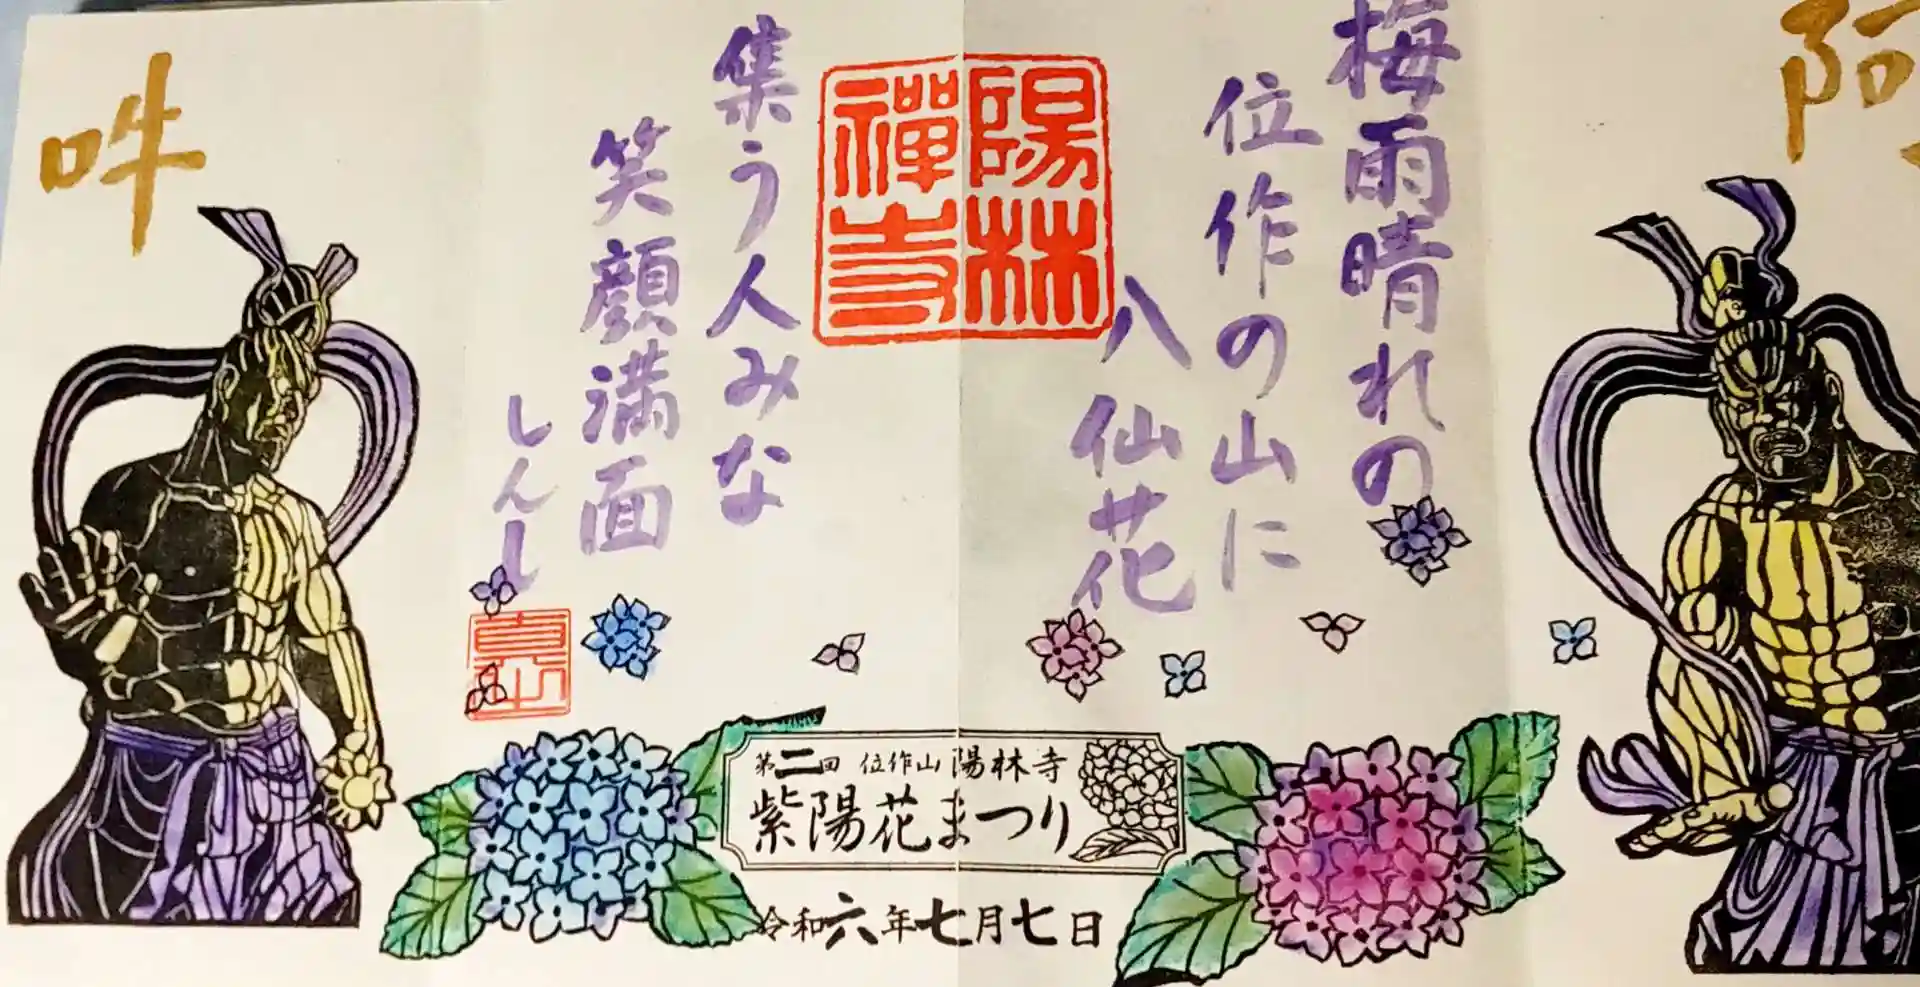 阿
梅雨晴れの
位作の山に
八仙花
陽林
禪寺
集う人みな
笑顔満面
しんし
吽
第二回 位作山 陽林寺
紫陽花まつり
令和六年七月七日